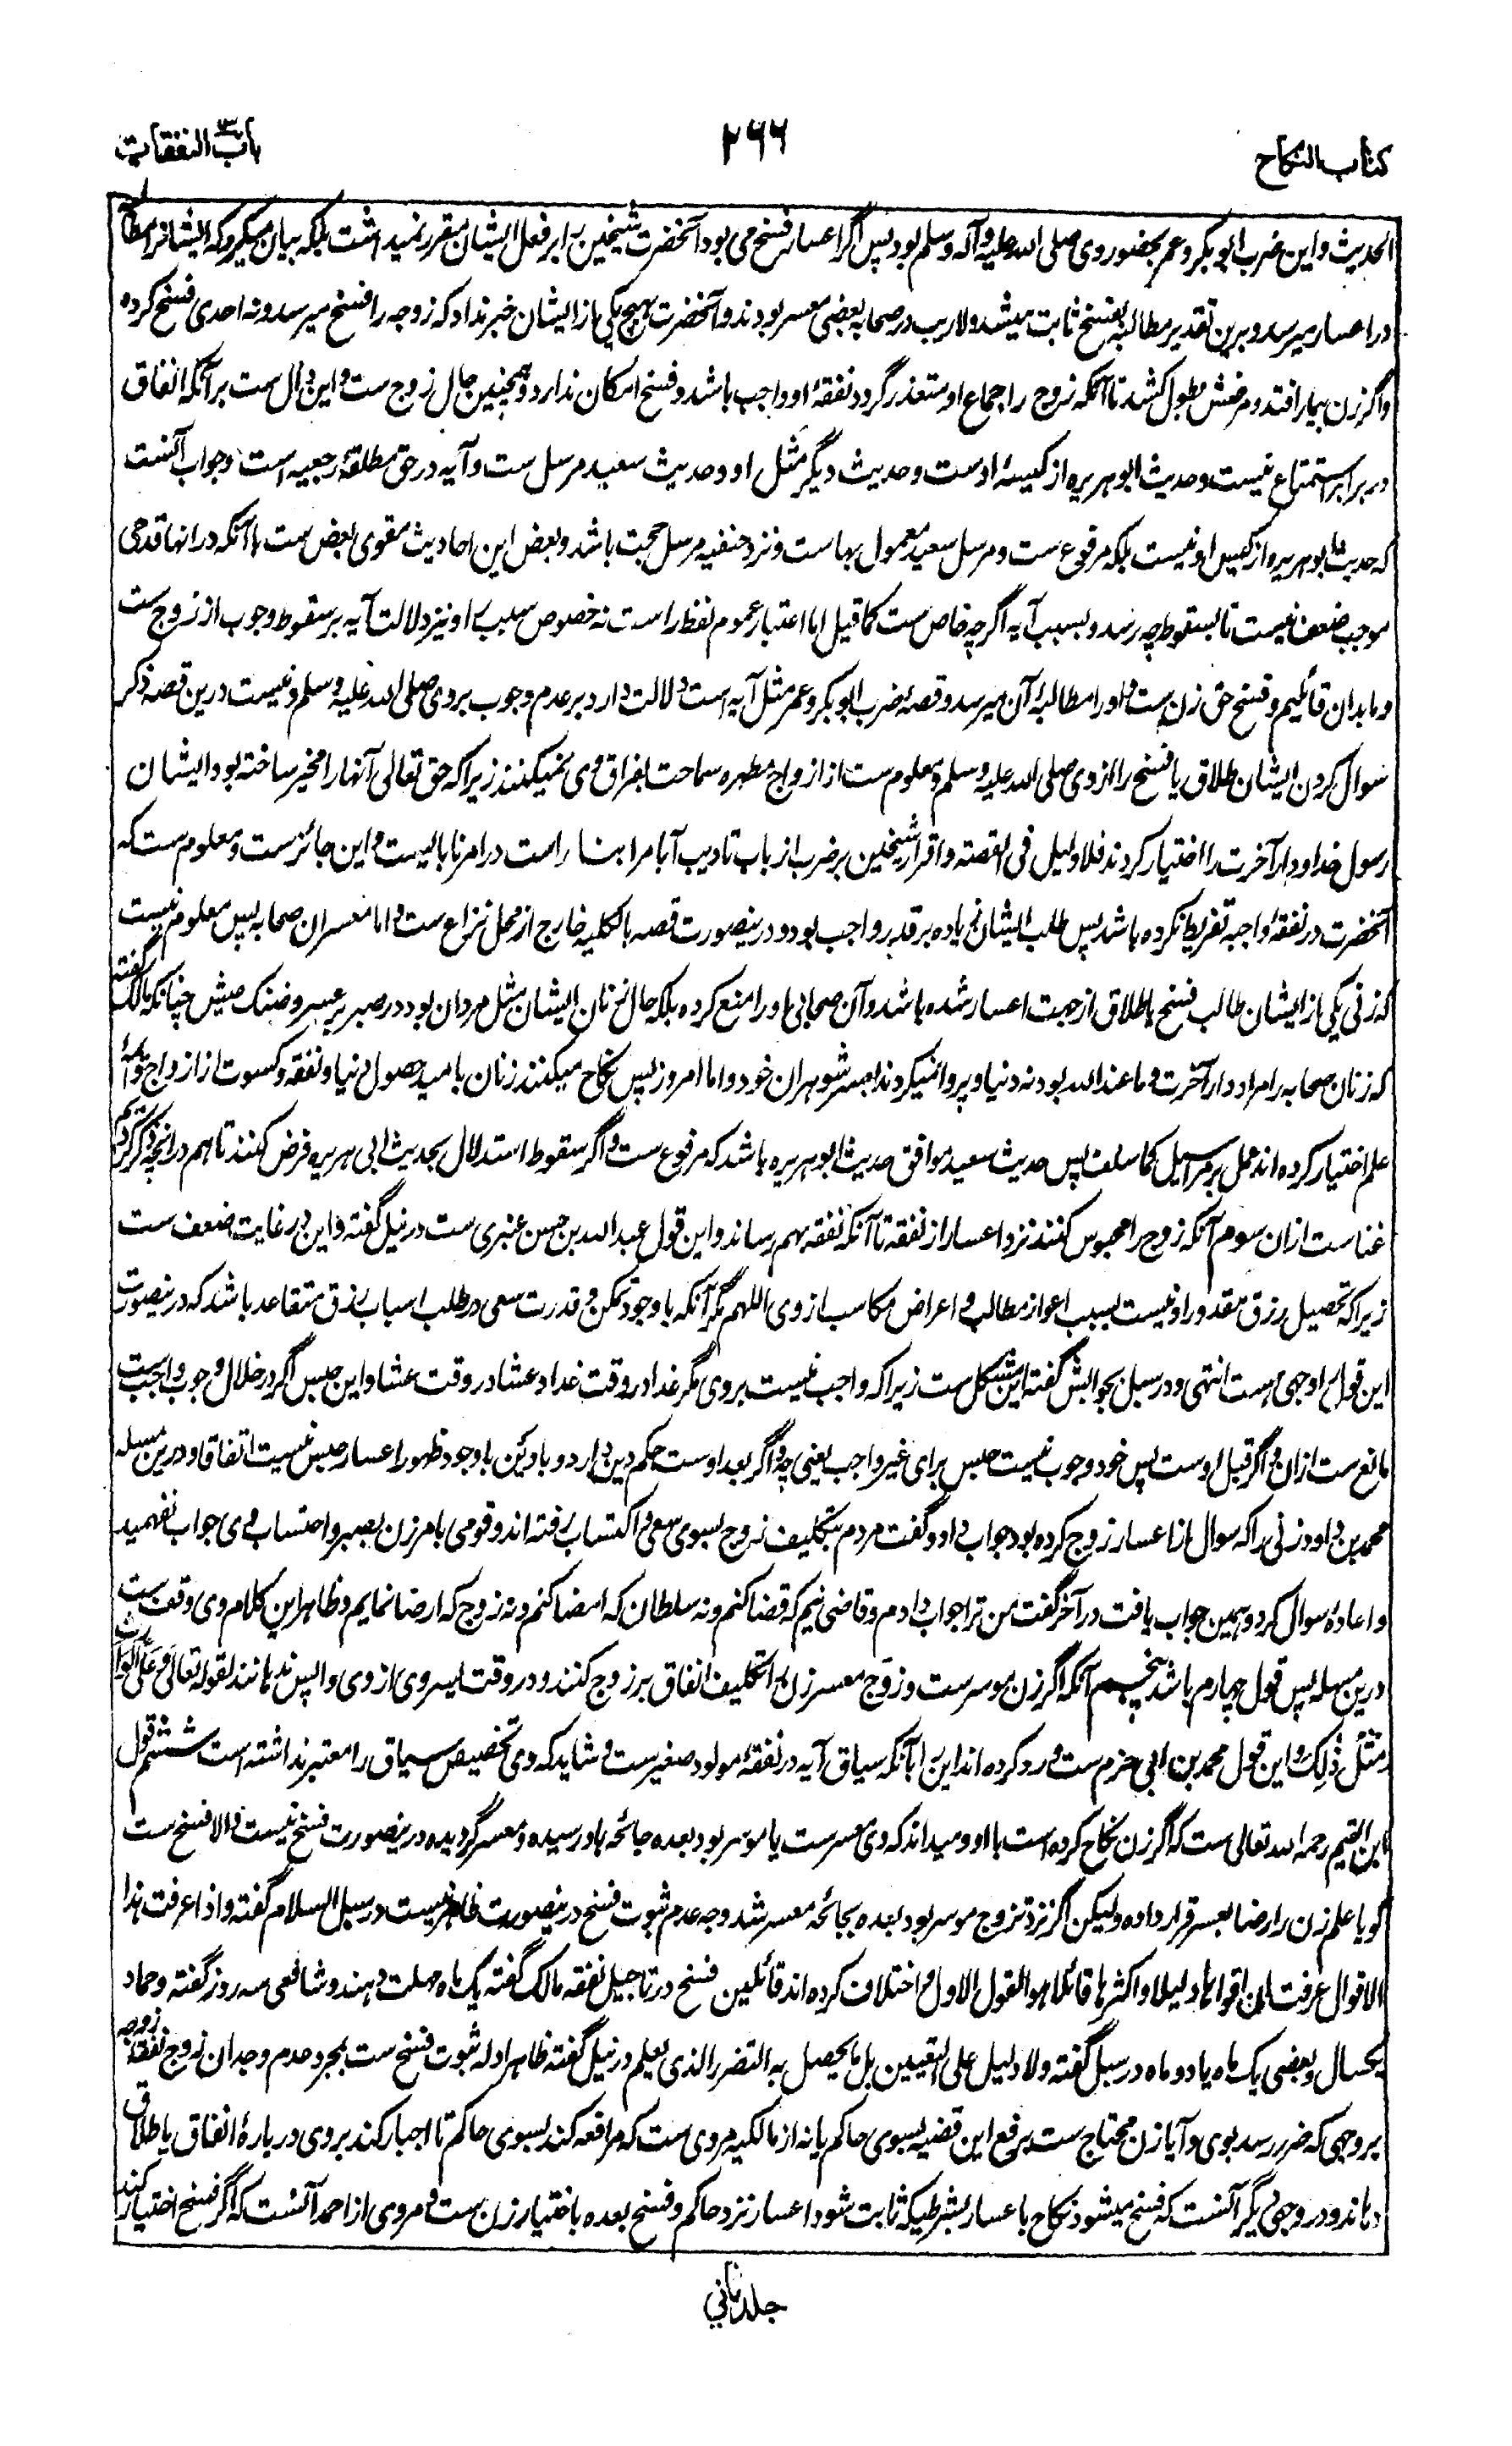 کتاب النکاح
۲۶۶
باب النفقات
الحدیث و این ضرب ابوبکر و عمر بحضور وی صلی الله علیه و آله و سلم بود پس اگر اعسار فسخ می بود آنحضرت شیخین را بر فعل ایشان مقرر نمیداشت بلکه بیان میکرد که ایشانرا مطالبه
در اعسار میرسد و برین تقدیر مطالبه بفسخ ثابت میشد و لاریب در صحابه بعضی معسر بودند و آنحضرت بهیچ یکی از ایشان خبر نداد که زوجه را فسخ میرسد و نه احدی فسخ کرده
و اگر زن بیمار افتد و مرضش بطول کشد تا آنکه زوج را جماع او متعذر گردد نفقهٔ او واجب باشد و فسخ امکان ندارد و همچنین حال زوج ست و این دال ست بر آنکه انفاق
در برابر استمتاع نیست و حدیث ابو هریره از کیسهٔ اوست و حدیث دیگر مثل او و حدیث سعید مرسل ست و آیه در حق مطلقهٔ رجعیه است و جواب آنست
که حدیث ابو هریره از کیس او نیست بلکه مرفوع ست و مرسل سعید معمول بهاست و نزد حنفیه مرسل حجت باشد و بعض این احادیث مقوی بعض ست با آنکه در انها قدحی
موجب ضعف نیست تا بسقوط چه رسد و بسبب آیه اگرچه خاص ست کما قیل اما اعتبار عموم لفظ راست نه خصوص سبب را و نیز دلالت آیه بر سقوط وجوب از زوج ست
و ما بدان قائلیم و فسخ حق زن ست و او را مطالبهٔ آن میرسد و قصهٔ ضرب ابوبکر و عمر مثل آیه است دلالت دارد بر عدم وجوب بر وی صلی الله علیه و سلم و نیست درین قصه ذکر
سوال کردن ایشان طلاق یا فسخ را از وی صلی الله علیه و سلم و معلوم ست از ازواج مطهره سماحت بفراق وی نمیکنند زیرا که حق تعالی آنها را مخیر ساخته بود ایشان
رسول خدا و دار آخرت را اختیار کردند فلا دلیل فی القصة و اقرار شیخین بر ضرب از باب تادیب آبا مر ابنا راست در امر نابایست و این جائزست و معلوم ست که
آنحضرت در نفقهٔ واجبه تفریط نکرده باشد پس طلب ایشان زیاده بر قدر واجب بود و درینصورت قصه بالکلیه خارج از محل نزاع ست و اما معسران صحابه پس معلوم نیست
که زنی یکی از ایشان طالب فسخ یا طلاق از جهت اعسار شده باشد و آن صحابی او را منع کرده بلکه حال زنان ایشان مثل مردان بود در صبر بر عسر و ضنک عیش چنانکه مالک گفته
که زنان صحابه را مراد دار آخرت و ما عند الله بود نه دنیا و پروا نمیکردند بعسر شوهران خود و اما امروز پس نکاح میکنند زنان بامید حصول دنیا و نفقه و کسوت از ازواج و ائمهٔ
علم اختیار کرده اند عمل بر مراسیل کما سلف پس حدیث سعید موافق حدیث ابو هریره باشد که مرفوع ست و اگر سقوط استدلال بحدیث ابی هریره فرض کنند تا هم در انچه ذکر کردیم
غناست ازان سوم آنکه زوج را محبوس کنند نزد اعسار از نفقه تا آنکه نفقه بهم رساند و این قول عبدالله بن حسن عنبری ست در نیل گفته و این در غایت ضعف ست
زیرا که تحصیل رزق مقدور او نیست بسبب اعواز مطالب و اعراض مکاسب از وی اللهم مگر آنکه باوجود تمکن و قدرت سعی در طلب اسباب رزق متقاعد باشد که درینصورت
این قول را وجهی هست انتهی و در سبل بجوابش گفته این مشکل ست زیرا که واجب نیست بر وی مگر غدا در وقت غدا و عشا در وقت عشا و این حبس اگر در خلال وجوب واجب ست
مانع ست ازان و اگر قبل اوست پس خود وجوب نیست حبس برای غیر واجب یعنی چه و اگر بعد اوست حکم دین دارد و با دین باوجود ظهور اعسار حبس نیست اتفاقا و درین مسئله
محمد بن داود زنی را که سوال از اعسار زوج کرده بود جواب داد و گفت مردم بتکلیف زوج بسوی سعی و اکتساب رفته اند و قومی بامر زن بصبر و احتساب وی جواب نفهمید
و اعادهٔ سوال کرد و همین جواب یافت در آخر گفت من ترا جواب دادم و قاضی نیم که قضا کنم و نه سلطان که امضا کنم و نه زوج که ارضا نمایم و ظاهر این کلام وی وقف ست
درین مسئله پس قول چهارم باشد پنجم آنکه اگر زن موسرست و زوج معسر زن را تکلیف انفاق بر زوج کنند و در وقت یسر وی از وی واپس نستانند لقوله تعالی وَعَلَى الْوَارِثِ
مِثْلُ ذٰلِكَ و این قول محمد بن ابی حزم ست و رد کرده اند این را بآنکه سیاق آیه در نفقهٔ مولود صغیرست و شاید که وی تخصیص سیاق را معتبر نداشته است ششم قول
ابن القیم رحمه الله تعالی ست که اگر زن نکاح کرده است با او و میداند که وی معسرست یا موسر بود بعده جائحه باو رسیده و معسر گردیده درینصورت فسخ نیست و الا فسخ ست
گویا علم زن را رضا بعسر قرار داده ولیکن اگر نزد تزوج موسر بود بعده بجائحه معسر شد وجه عدم ثبوت فسخ درینصورت ظاهر نیست در سبل السلام گفته و اذا عرفت هذا
الاقوال عرفت ان اقواها دلیلا و اکثرها قائلا هو القول الاول و اختلاف کرده اند قائلین فسخ در تاجیل نفقه مالک گفته یک ماه مهلت دهند و شافعی سه روز گفته و حماد
یکسال و بعضی یک ماه یا دو ماه در سبل گفته و لا دلیل علی التعیین بل ما یحصل به التضرر الذی یعلم در نیل گفته ظاهر ادله ثبوت فسخ ست بمجرد عدم وجدان زوج نفقهٔ زوجه
بر وجهی که ضرر رسد بوی و آیا زن محتاج ست برفع این قضیه بسوی حاکم یا نه از مالکیه مروی ست که مرافعه کند بسوی حاکم تا اجبار کند بر وی دربارهٔ انفاق یا طلاق
دهاند و در وجهی دیگر آنست که فسخ میشود نکاح باعسار بشرطیکه ثابت شود اعسار نزد حاکم و فسخ بعده باختیار زن ست و مروی از احمد آنست که اگر فسخ اختیار کند
جلد ثانی